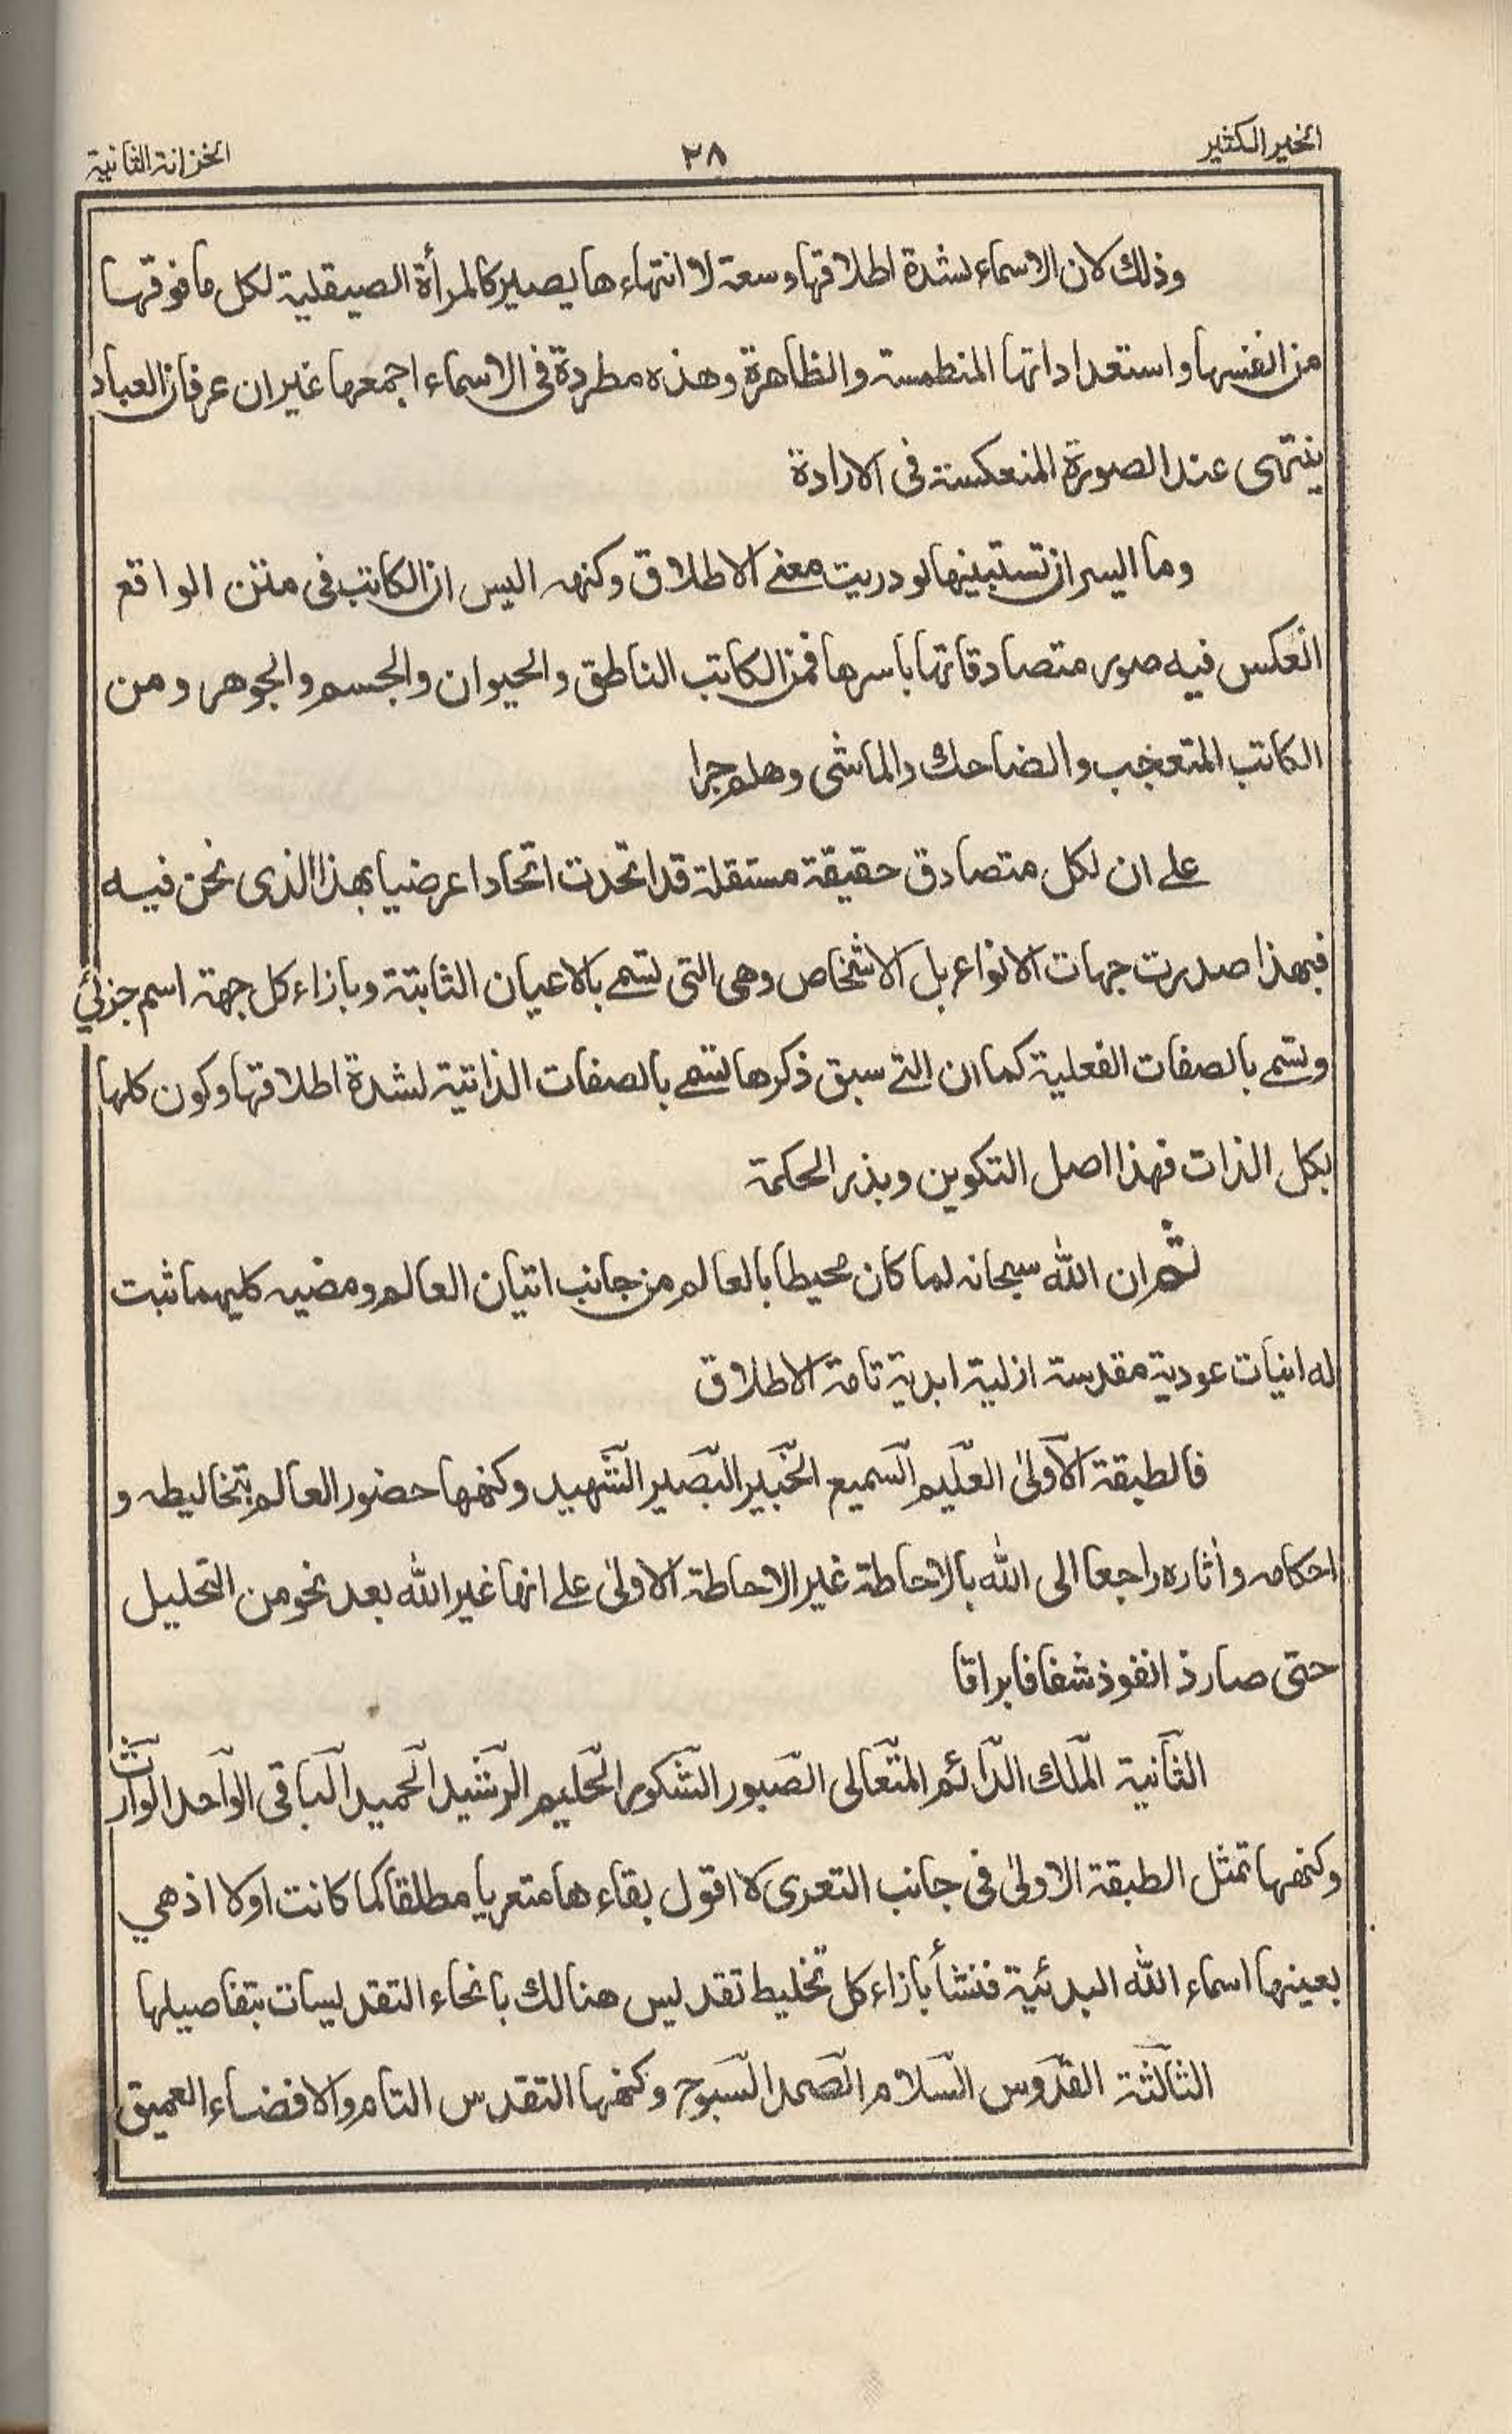 الخير الكثير
٢٨
الخزانة الثانية
وذلك لان الاسماء لشدة اطلاقها وسعة لا انتهاء ها يصير كالمرأة الصيقلية لكل ما فوقها
من انفسها واستعداداتها المنطمسة والظاهرة وهذه مطردة فى الاسماء اجمعها غير ان عرفان العباد
ينتهى عند الصورة المنعكسة فى الارادة
وما اليسر ان تستبينها لو دريت معنے الاطلاق وكنهه اليس ان الكاتب فى متن الواقع
انعكس فيه صور متصادقاتها باسرها فمن الكاتب الناطق والحيوان والجسم والجوهر ومن
الكاتب المتعجب والضاحك والماشى وهلم جرا
علے ان لكل متصادق حقيقة مستقلة قد اتحدت اتحادا عرضيا بهذا الذى نحن فيه
فبهذا صدرت جهات الانواع بل الاشخاص وهى التى تسمے بالاعيان الثابتة وبازاء كل جهة اسم جزئي
وتسمے بالصفات الفعلية كما ان التے سبق ذكرها تسمے بالصفات الذاتية لشدة اطلاقها وكون كلها
بكل الذات فهذا اصل التكوين وبذر الحكمة
ثم ان الله سبحانه لما كان محيطا بالعالم من جانب اتيان العالم ومضيه كليهما ثبت
له انيات عودية مقدسة ازلية ابدية تامة الاطلاق
فالطبقة الاولىٰ العليم السميع الخبير البصير الشهيد وكنهها حضور العالم بتخاليطه و
احكامه وأثاره راجعا الى الله بالاحاطة غير الاحاطة الاولىٰ علے انها غير الله بعد نحو من التحليل
حتى صار ذا نفوذ شفافا براقا
الثانية الملك الدائم المتعالى الصبور الشكور الحليم الرشيد الحميد الباقى الواحد الوارث
وكنهها تمثل الطبقة الاولىٰ فى جانب التعرى لا اقول بقاء ها متعريا مطلقا كما كانت اولا اذ هي
بعينها اسماء الله البدئية فنشأ بازاء كل تخليط تقديس هنالك بانحاء التقديسات بتفاصيلها
الثالثة القدوس السلام الصمد السبوح وكنهها التقدس التام والافضاء العميق